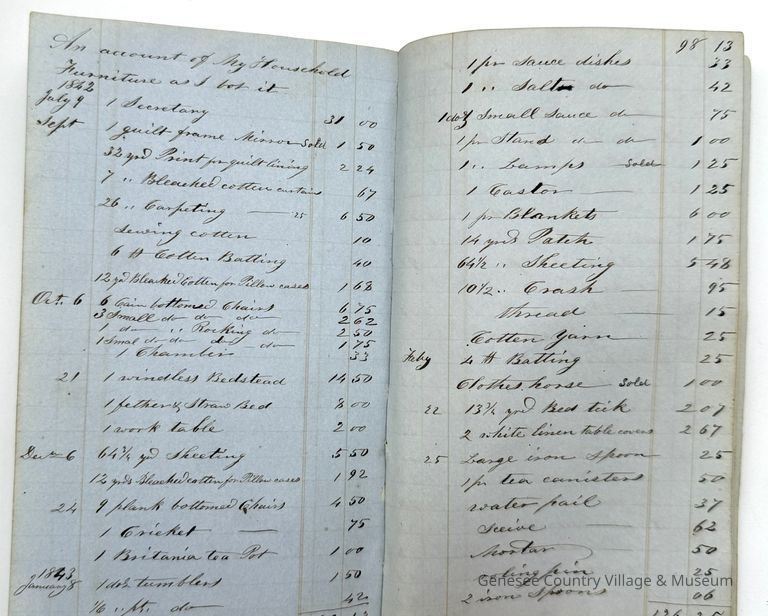 An account of My Household
Furniture as I bot it
1842
July 9 1 Secretary 31 00
Sept 1 guilt frame Mirror Sold 1 50
32 yrd Print pr quilt lining 2 24
7 ,, Bleached cotten curtains 67
26 ,, Carpeting 25 6 50
Sewing cotten 10
6 # Cotten Batting 40
12 yd Bleached Cotten for Pillow cases 1 68
Oct. 6 6 Cain bottomed Chairs 6 75
3 Small do do do 2 62
1 do ,, Rocking do 2 50
1 Smal do do do 1 75
1 Chamber 33
21 1 windless Bedstead 14 50
1 fether & Straw Bed 8 00
1 work table 2 00
Dec 6 64 3/4 yd Sheeting 5 50
12 yrds Bleached cotten for Pillow cases 1 92
24 9 plank bottomed Chairs 4 50
1 Cricket 75
1 Britania tea Pot 1 00
1843
January 8 1 doz tumblers 1 50
,, pt. do 42
98 13
1 pr Sauce dishes 33
1 ,, Salt do 42
1 doz Small Sauce do 75
1 pr Stand do do 1 00
1 ,, Lamps Sold 1 25
1 Castor 1 25
1 pr Blankets 6 00
14 yrds Patch 1 75
64 1/2 ,, Sheeting 5 48
10 1/2 ,, Crash 95
thread 15
Cotten Yarn 25
Feby 4 # Batting 25
Clothes horse Sold 1 00
22 13 3/4 yrd Bed tick 2 07
2 white linen table covers 2 67
25 Large iron Spoon 25
1 pr tea canisters 50
water pail 37
Seeive 62
Mortar 50
25
2 iron Spoons 06
Genesee Country Village & Museum